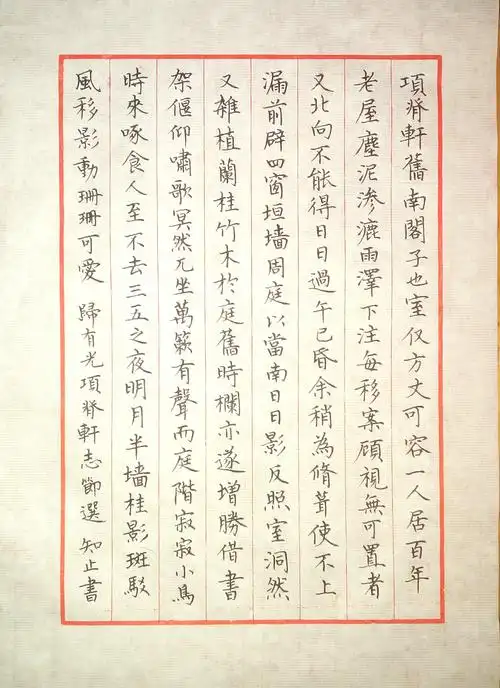 項脊軒舊南閣子也室仅方丈可容一人居百年
老屋塵泥渗漉雨澤下注每移案顧視無可置者
又北向不能得日日過午已昏余稍為脩葺使不上
漏前辟四窗垣墙周庭以當南日日影反照室洞然
又雜植蘭桂竹木於庭舊時欄亦遂增勝借書
架偃仰嘯歌冥然兀坐萬籁有聲而庭階寂寂小鳥
時來啄食人至不去三五之夜明月半墙桂影斑駁
風移影動珊珊可愛 歸有光項脊軒志節選 知止書